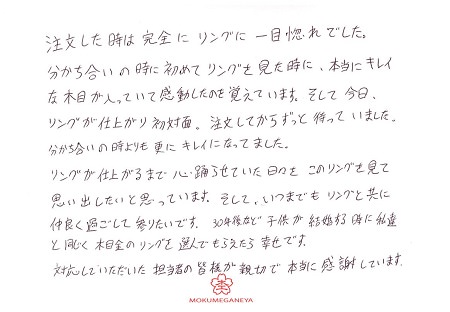 注文した時は完全にリングに一目惚れでした。
分かち合いの時に初めてリングを見た時に、本当にキレイ
な木目が入っていて感動したのを覚えています。そして今日、
リングが仕上がり初対面。注文してからずっと待っていました。
分かち合いの時よりも更にキレイになってました。
リングが仕上がるまで心踊らせていた日々をこのリングを見て
思い出したいと思っています。そして、いつまでもリングと共に
仲良く過ごして参りたいです。30年後など子供が結婚する時に私達
と同じく木目金のリングを選んでもらえたら幸せです。
対応していただいた担当者の皆様が親切で本当に感謝しています。
MOKUMEGANEYA